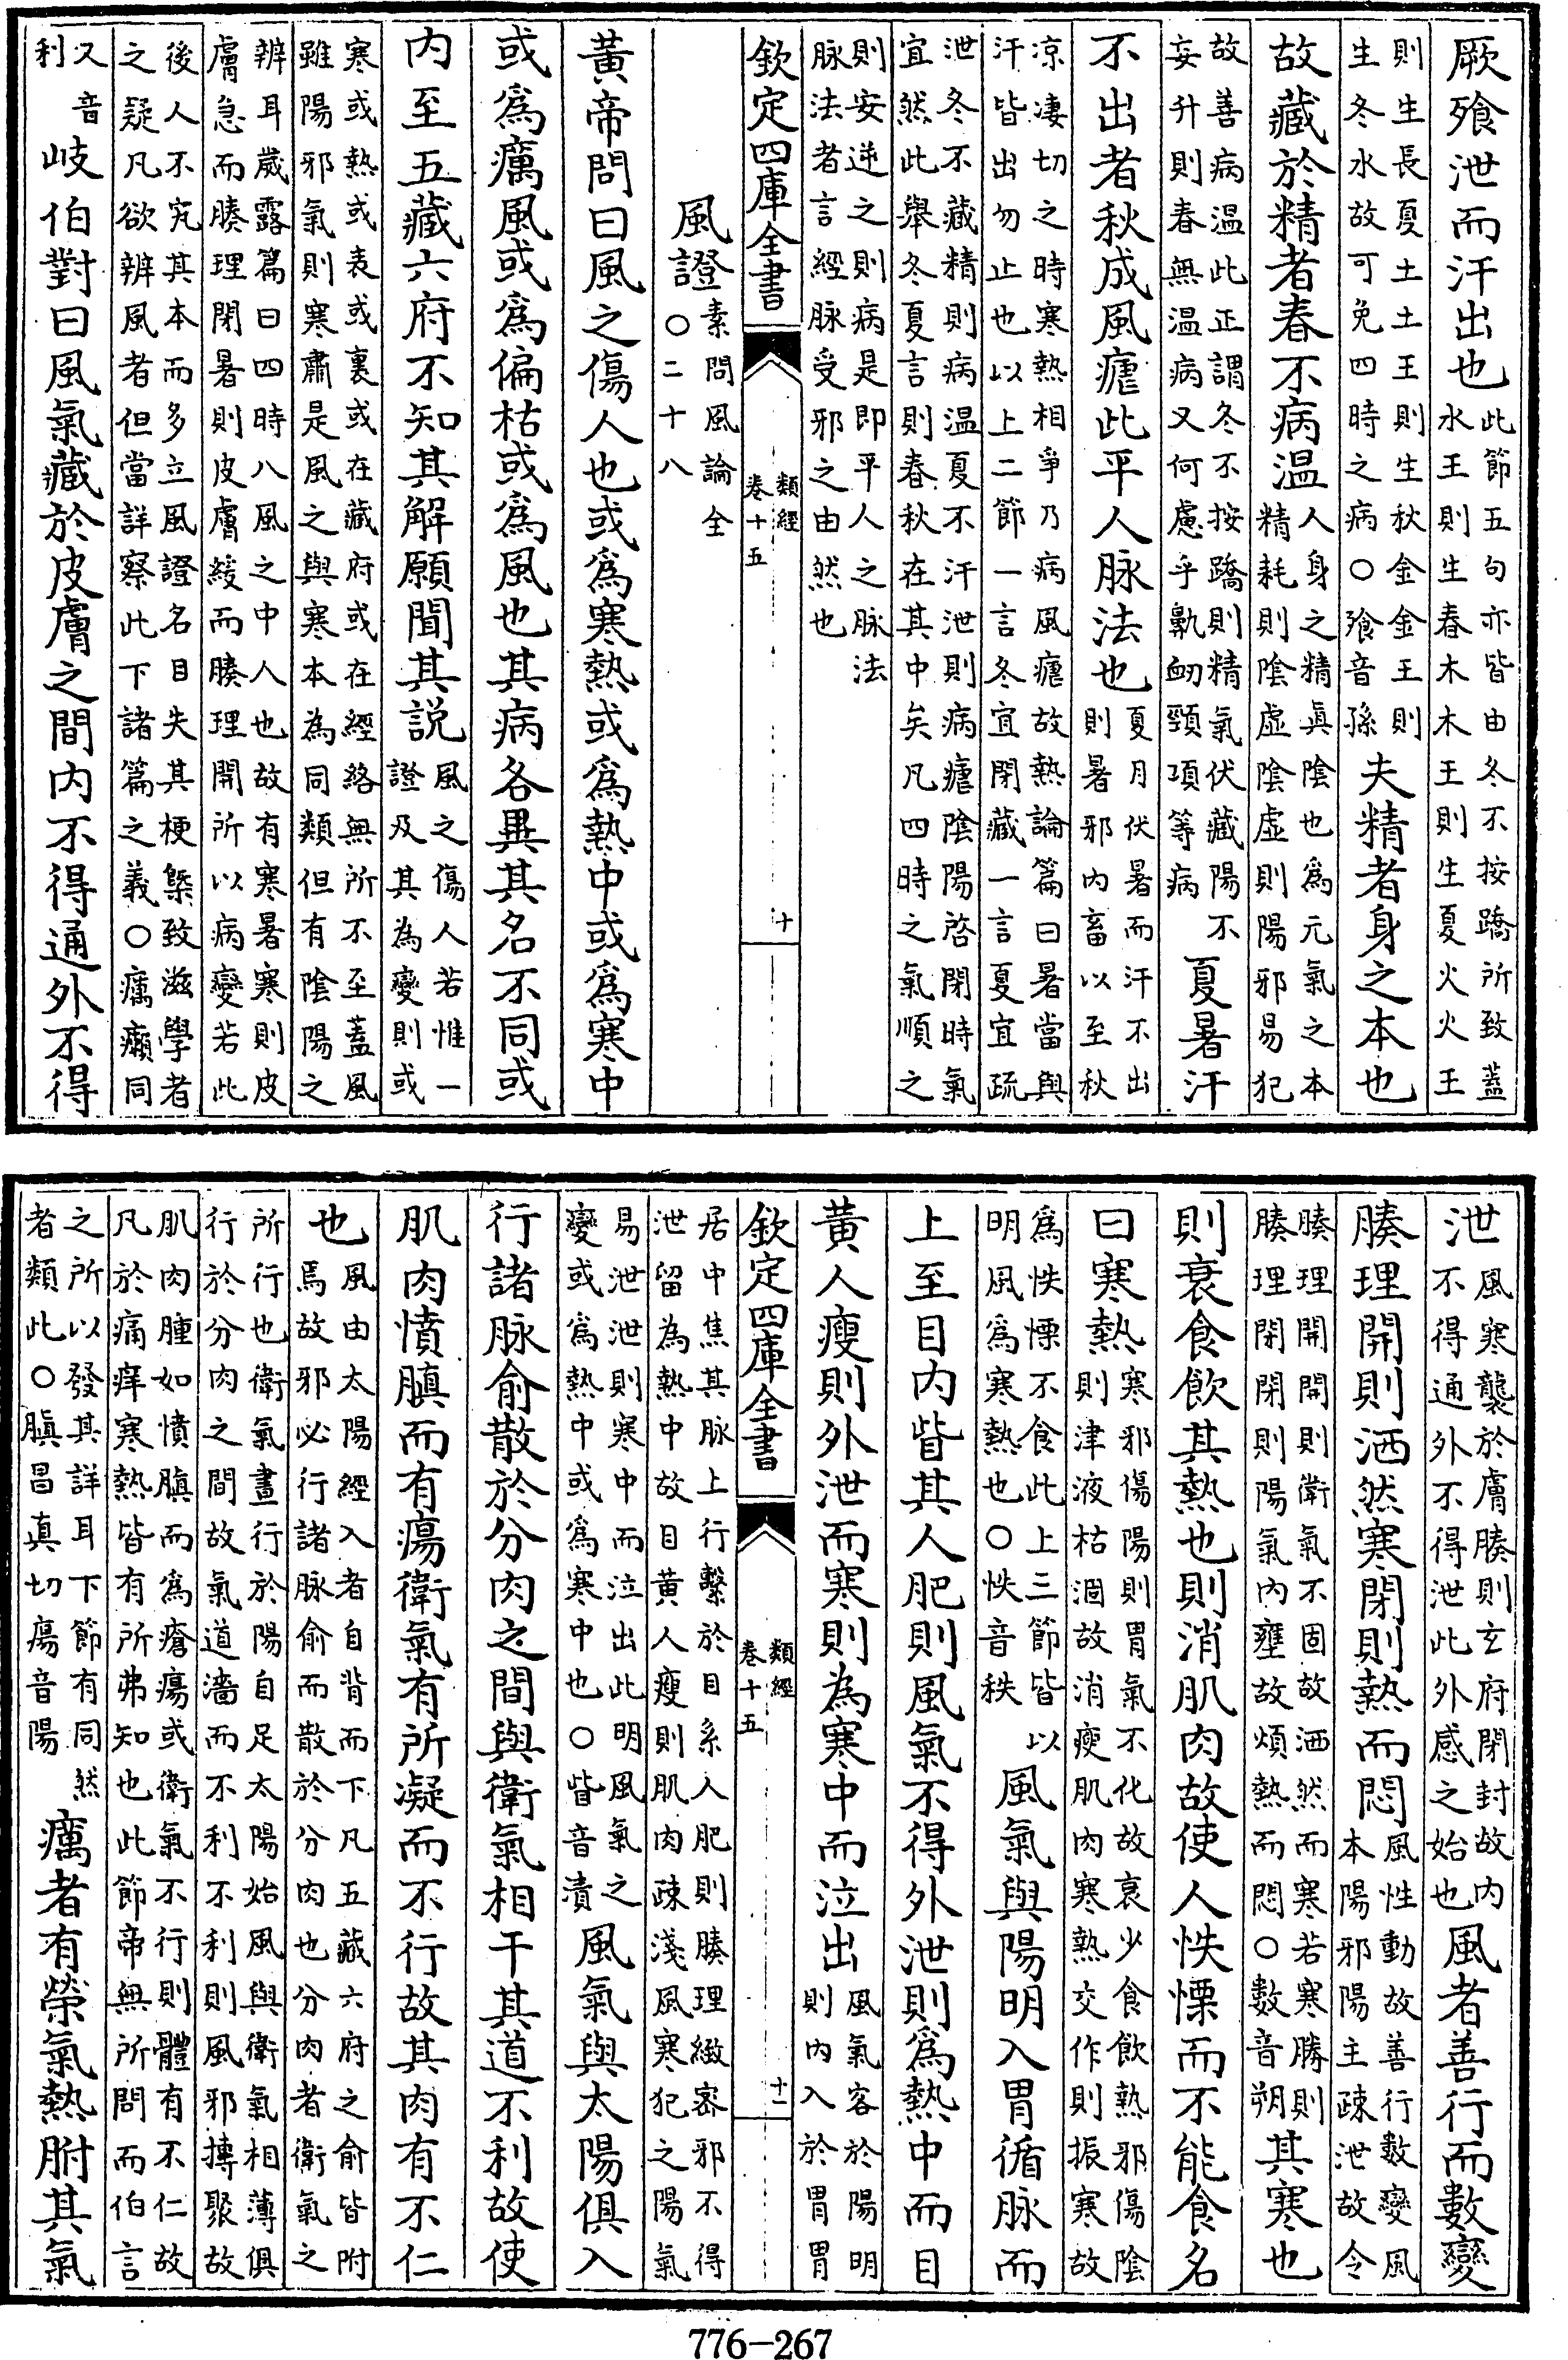 厥飱泄而汗出也此節五句亦皆由冬不按蹻所致蓋水王則生春木木王則生夏火火王
則生長夏土土王則生秋金金王則生冬水故可免四時之病○飱音孫夫精者身之本也
故藏於精者春不病温人身之精真陰也爲元氣之本精耗則陰虛陰虛則陽邪易犯
故善病温此正謂冬不按蹻則精氣伏藏陽不妄升則春無温病又何慮乎鼽衂頸項等病夏暑汗
不出者秋成風瘧此平人脉法也夏月伏暑而汗不出則暑邪内畜以至秋
凉凄切之時寒熱相爭乃病風瘧故熱論篇曰暑當與汗皆出勿止也以上二節一言冬宜閉藏一言夏宜疏
泄冬不藏精則病温夏不汗泄則病瘧陰陽啓閉時氣宜然此舉冬夏言則春秋在其中矣凡四時之氣順之
則安逆之則病是即平人之脉法脉法者言經脉受邪之由然也
欽定四庫全書 類經 卷十五 十
風證素問風論全○二十八
黃帝問曰風之傷人也或爲寒熱或爲熱中或爲寒中
或爲癘風或爲偏枯或爲風也其病各異其名不同或
内至五藏六府不知其解願聞其説風之傷人若惟一證及其為變則或
寒或熱或表或裏或在藏府或在經絡無所不至蓋風雖陽邪氣則寒肅是風之與寒本為同類但有陰陽之
辨耳嵗露篇曰四時八風之中人也故有寒暑寒則皮膚急而腠理閉暑則皮膚緩而腠理開所以病變若此
後人不究其本而多立風證名目失其梗槩致滋學者之疑凡欲辨風者但當詳察此下諸篇之義○癘癩同
又音利岐伯對曰風氣藏於皮膚之間内不得通外不得
泄風寒襲於膚腠則玄府閉封故内不得通外不得泄此外感之始也風者善行而數變
腠理開則洒然寒閉則熱而悶風性動故善行數變風本陽邪陽主疎泄故令
腠理開開則衛氣不固故洒然而寒若寒勝則腠理閉閉則陽氣内壅故煩熱而悶○數音朔其寒也
則衰食飲其熱也則消肌肉故使人怢慄而不能食名
曰寒熱寒邪傷陽則胃氣不化故衰少食飲熱邪傷陰則津液枯涸故消瘦肌肉寒熱交作則振寒故
爲怢慄不食此上三節皆以明風爲寒熱也○怢音秩風氣與陽明入胃循脉而
上至目内眥其人肥則風氣不得外泄則爲熱中而目
黃人瘦則外泄而寒則為寒中而泣出風氣客於陽明則内入於胃胃
居中焦其脉上行繫於目系人肥則腠理緻密邪不得泄留為熱中故目黃人瘦則肌肉疎淺風寒犯之陽氣
易泄泄則寒中而泣出此明風氣之變或爲熱中或爲寒中也○眥音漬風氣與太陽俱入
行諸脉俞散於分肉之間與衛氣相干其道不利故使
肌肉憤䐜而有瘍衛氣有所凝而不行故其肉有不仁
也風由太陽經入者自背而下凡五藏六府之俞皆附焉故邪必行諸脉俞而散於分肉也分肉者衛氣之
所行也衛氣晝行於陽自足太陽始風與衛氣相薄俱行於分肉之間故氣道濇而不利不利則風邪摶聚故
肌肉腫如憤䐜而爲瘡瘍或衛氣不行則體有不仁故凡於痛痒寒熱皆有所弗知也此節帝無所問而伯言
之所以發其詳耳下節有同然者類此○䐜昌真切瘍音陽癘者有榮氣熱胕其氣
欽定四庫全書 類經 卷十五 十一
776-267